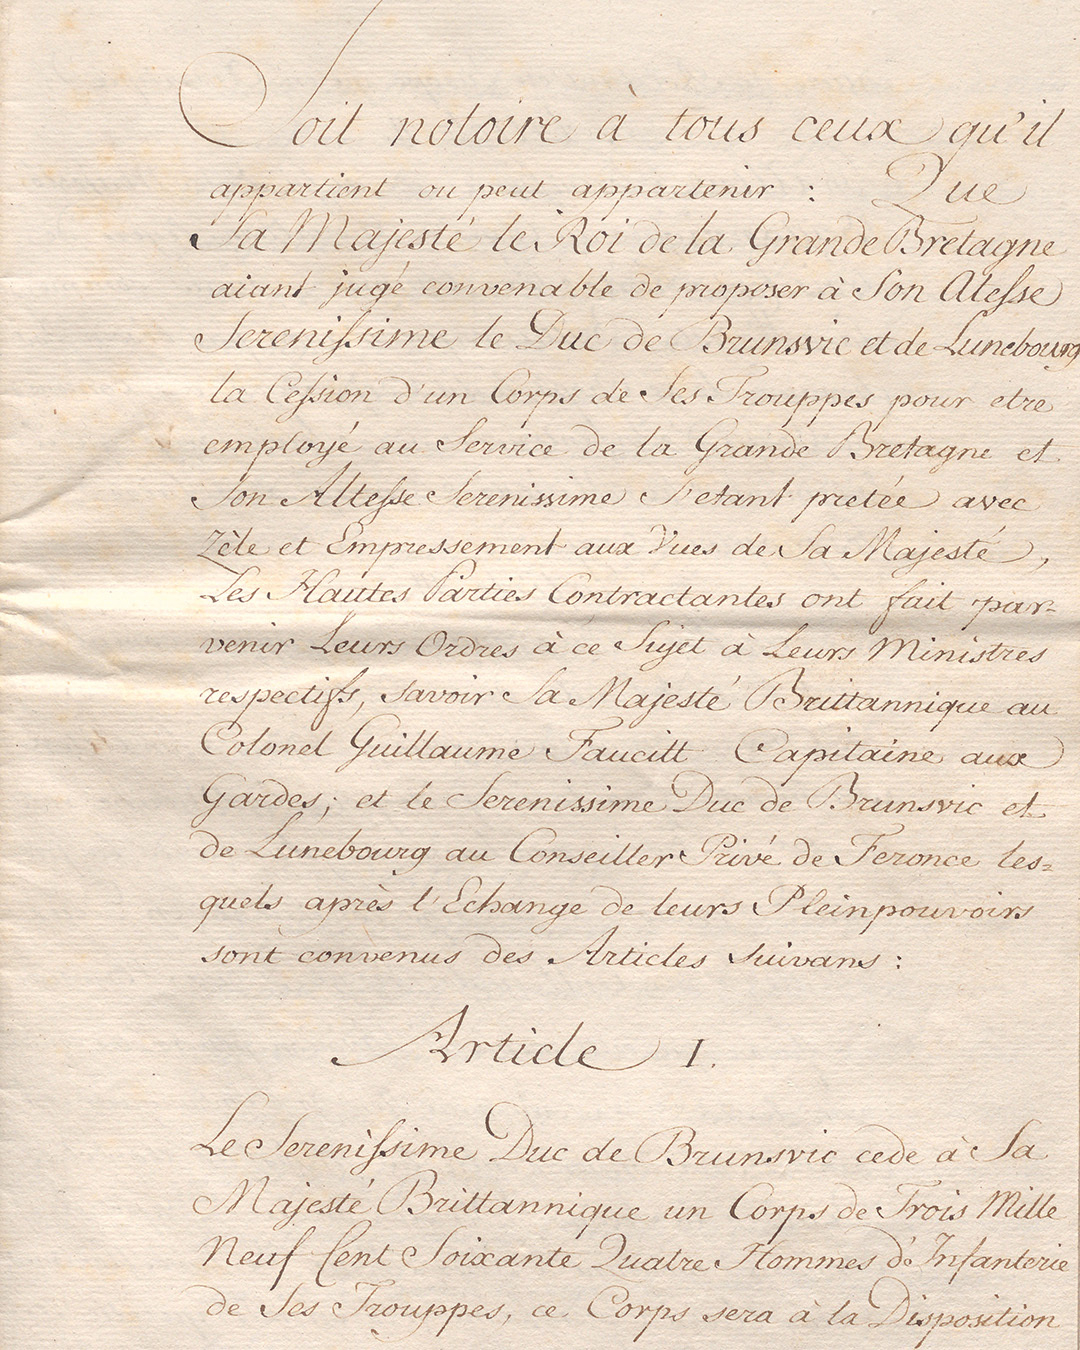 Soit notoire à tous ceux qu'il
appartient ou peut appartenir : Que
Sa Majesté le Roi de la Grande Bretagne
aiant jugé convenable de proposer à Son Alesse
Serenissime le Duc de Brunsvic et de Lunebourg
la Cession d'un Corps de Ses Trouppes pour etre
employé au Service de la Grande Bretagne et
Son Altesse Serenissime s'etant pretée avec
Zèle et Empressement aux Vues de Sa Majesté,
Les Hautes Parties Contractantes ont fait par-
venir Leurs Ordres à ce Sujet à Leurs Ministres
respectifs, savoir Sa Majesté Brittannique au
Colonel Guillaume Faucitt Capitaine aux
Gardes; et le Serenissime Duc de Brunsvic et
de Lunebourg au Conseiller Privé de Feronce les=
quels après l'Echange de leurs Pleinpouvoirs
sont convenus des Articles suivans :
Article I.
Le Serenissime Duc de Brunsvic cede à Sa
Majesté Brittannique un Corps de Trois Mille
Neuf Cent Soixante Quatre Hommes d'Infanterie
de Ses Trouppes, ce Corps sera à la Disposition